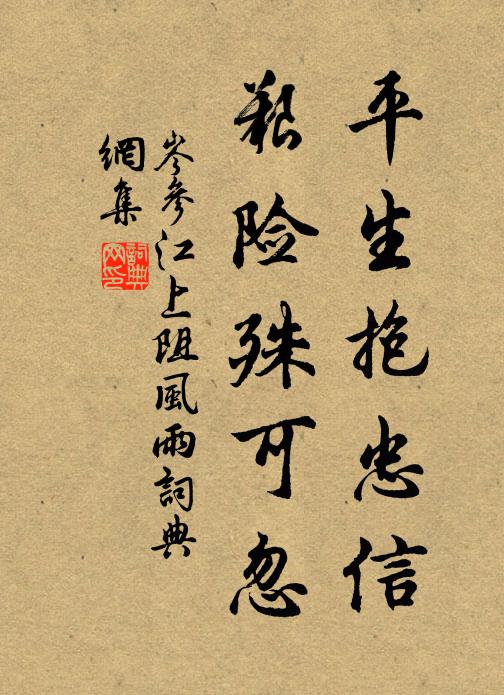 平生抱忠信
艱险殊可忽
岑參江上阻風雨詞典
網集
詞典
网印